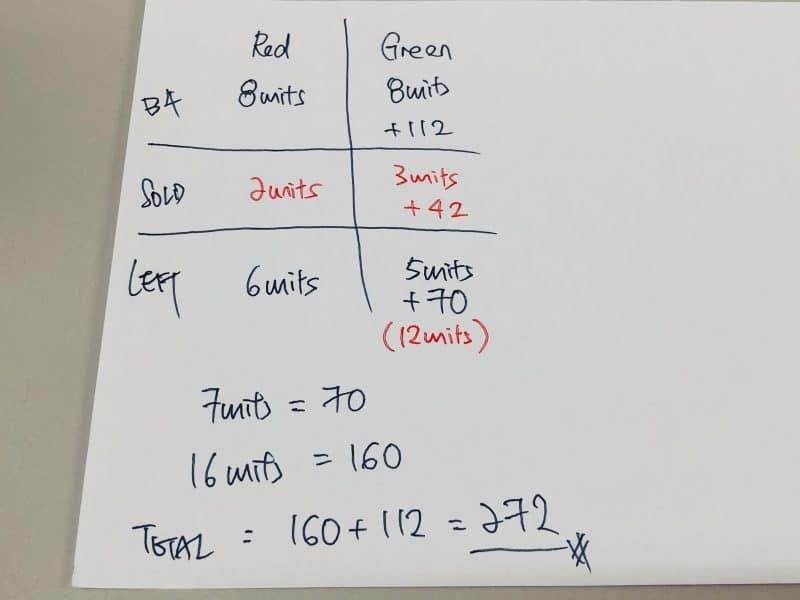 Red Green
B4 8units 8units
+112
SOLD 2units 3units
+42
LEFT 6units 5units
+70
(12units)
7units = 70
16units = 160
TOTAL = 160+112 = 272